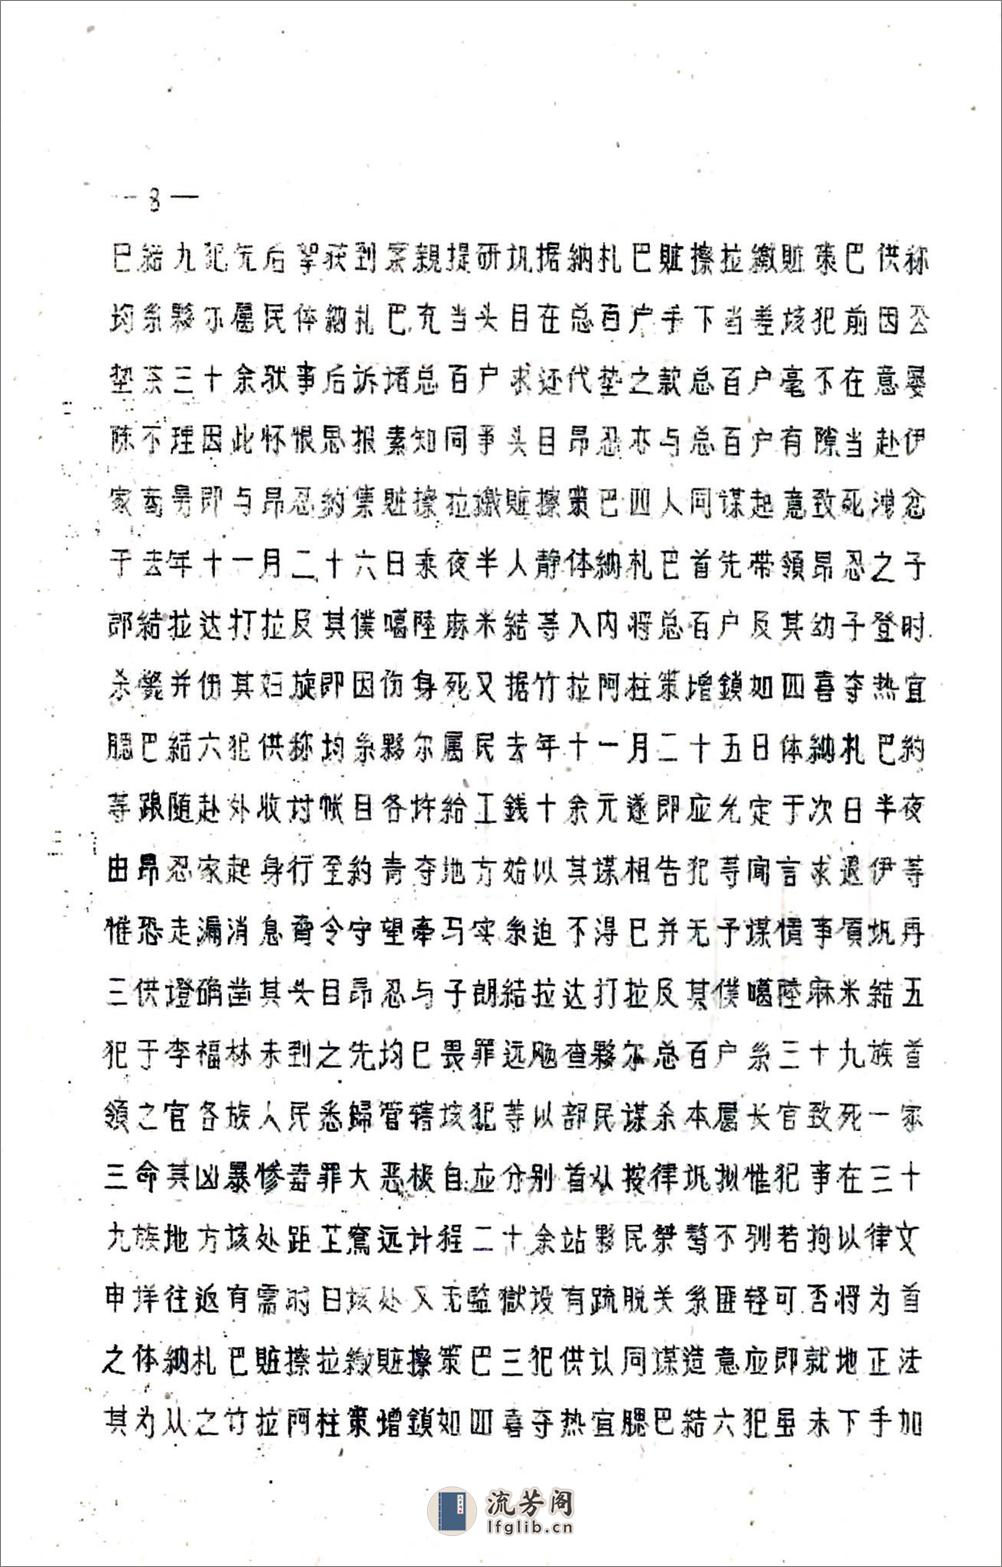 —8—
巴結九犯先后拏获到案親提研坈据納札巴賍擦拉繳賍策巴供称
均糸夥尔属民体納札巴充当头目在总百户手下当差该犯前因公
垫茶三十余驮事后訴诸总百户求还代垫之款总百户毫不在意屡
陈不理因此怀恨思报素知同亊头目昂忍亦与总百户有隙当赴伊
家商另即与昂忍約集賍擦拉繳賍擦策巴四人同谋起意致死洩忿
于去年十一月二十六日乘夜半人静体納札巴首先带領昂忍之子
郎結拉达打拉及其僕噶陸麻米結等入内将总百户及其幼子登时
杀毙并伤其妇旋即因伤身死又据竹拉阿柱策增鎖如四喜夺热宜
腮巴結六犯供称均糸夥尔属民去年十一月二十五日体納札巴約
等跟随赴外收讨帐目各許給工銭十余元遂即应允定于次日半夜
由昂忍家起身行至約青夺地方始以其谋相告犯等闻言求退伊等
惟恐走漏消息脅令守望牵马实糸迫不得巳并无予谋情事項坈再
三供證确凿其头目昂忍与子朗結拉达打拉及其僕噶陸麻米結五
犯于李福林未到之先均巳畏罪远颺查夥尔总百户糸三十九族首
領之官各族人民悉歸管辖该犯等以部民谋杀本属长官致死一家
三命其凶暴惨毒罪大恶极自应分别首从按律坈拟惟犯事在三十
九族地方该处距芷窵远计程二十余站夥民桀骜不驯若拘以律文
申详往返有需时日该处又无監獄设有疏脱关糸匪轻可否将为首
之体納札巴賍擦拉繳賍擦策巴三犯供认同谋造意应即就地正法
其为从之竹拉阿柱策增鎖如四喜夺热宜腮巴結六犯虽未下手加
流芳阁
lfglib.cn